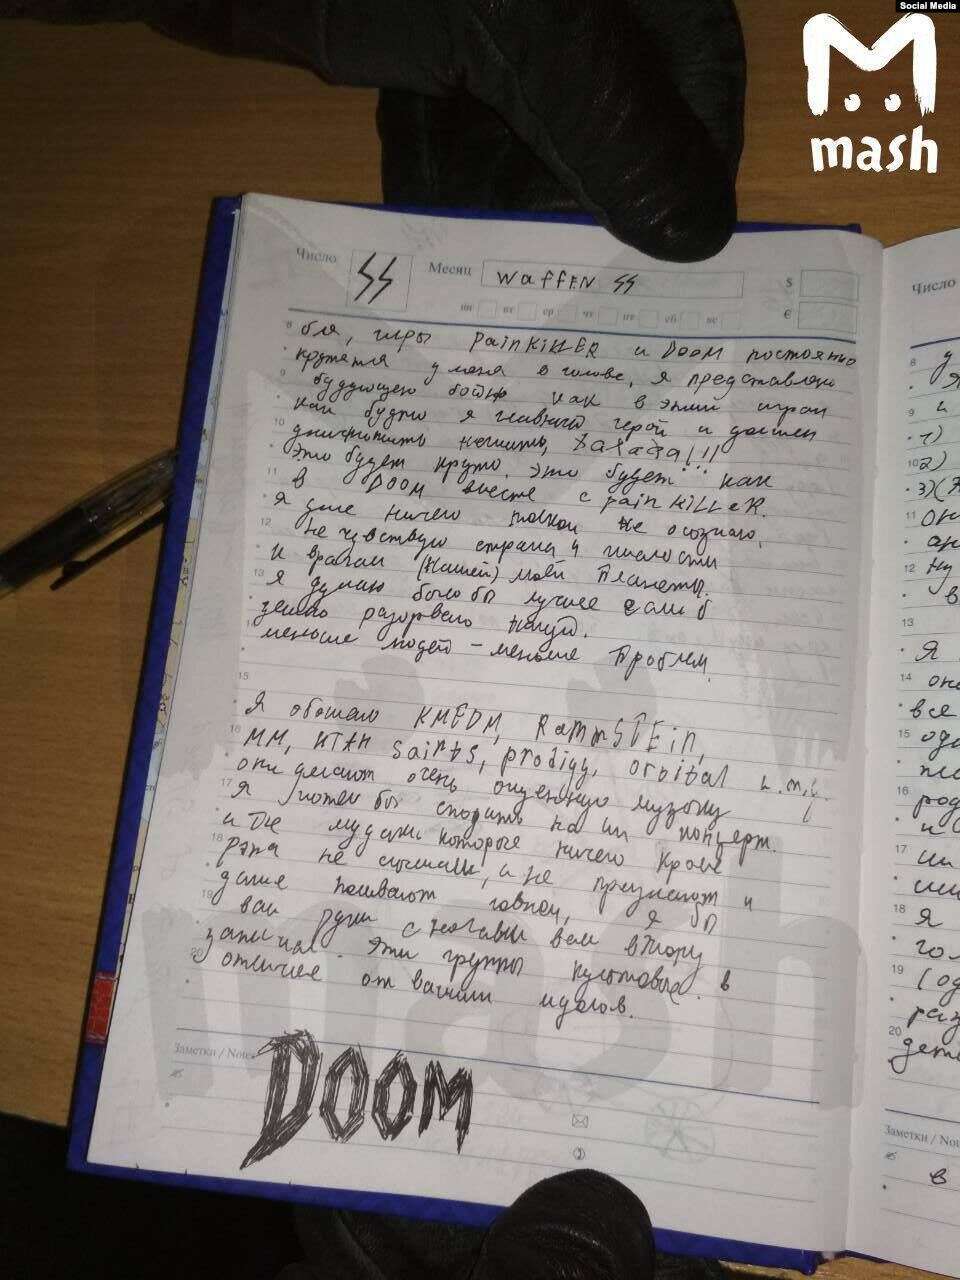 Social Media
mash
Число
SS
Месяц
Waffen SS
$
€
пн вт ср чт пт сб вс
8 бля, игры PainKiLLER и DOOM постоянно
крутятся у меня в голове, я представляю
9 бойню как в этих играх
как будто я главный герой и должен
10 уничтожить нечисть, хахаха!!!
Это будет круто. это будет как
11 в DOOM вместе с pain KiLLeR.
я уже ничего не осознаю,
12 Не чувствую страха и
к врагам (нашей) моей Планеты.
13 я думаю было бы лучше если б
землю разорвало
14 меньше людей - меньше Проблем.
15
Я обожаю KMFDM, RammSTEin,
16 MM, saints, prodigy, orbital и.т.д.
они делают очень музыку
17 Я хотел бы сходить на их концерт.
а те мудаки которые ничего кроме
18 рэпа не слышали, и не признают и
даже называют говном, я б
19 вам руки с ногами всем
20 Эти группы культовые в
отличие от ваших идолов.
Заметки / Notes
DOOM
Число
8 у
Я
9 и
1)
10 2)
3)
11 он
12 ну
в
13
Я
14 она
все
15
16 род
и
17 им
18 Я
го
19 (од
раз
20 дет
Заметки / No
в